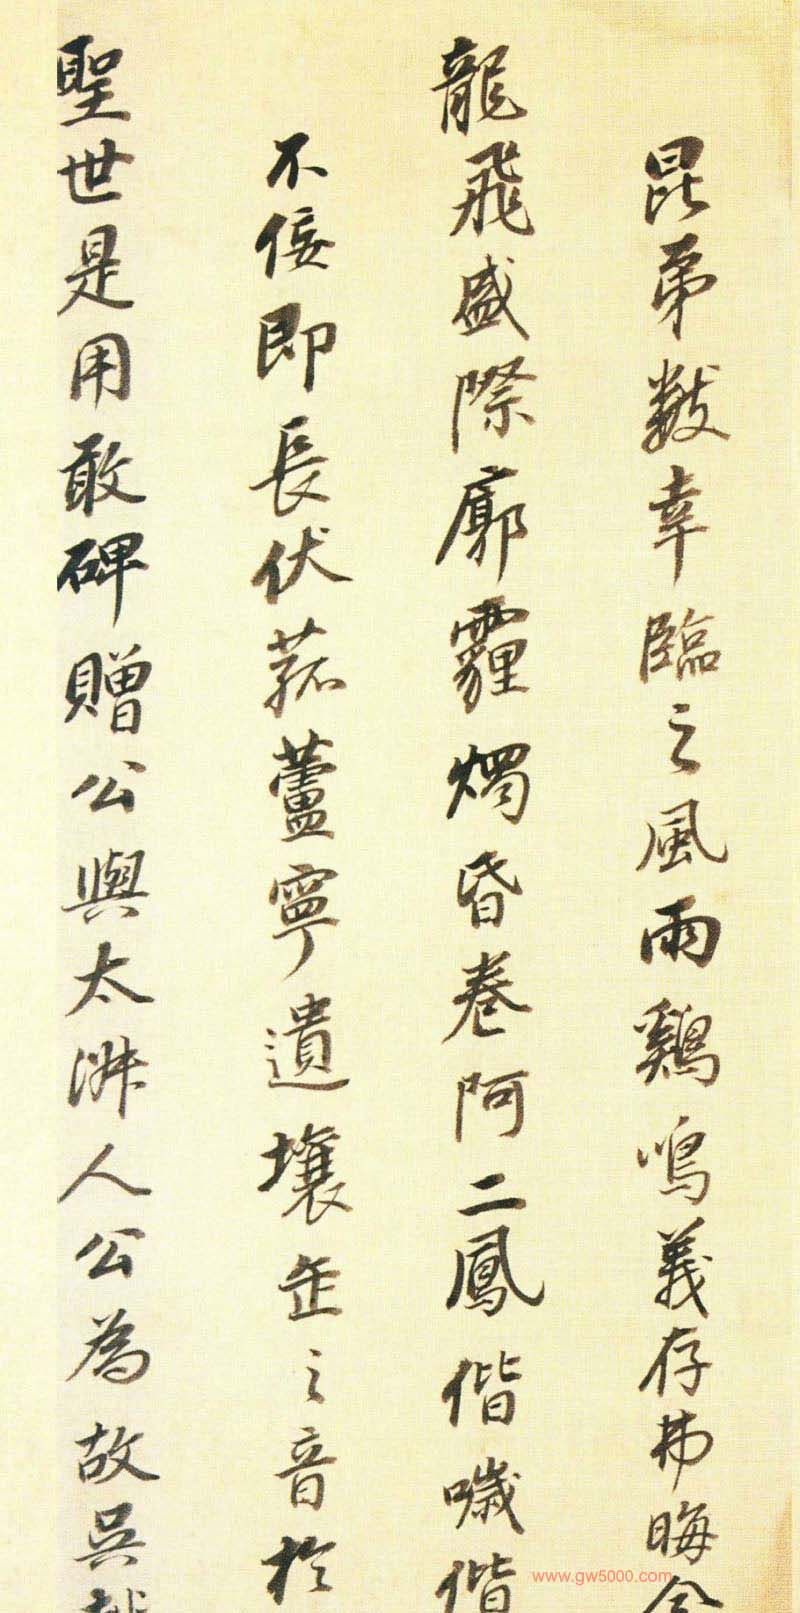 昆弟數幸臨之風雨鷄鳴義存弗晦今
龍飛盛際廓霾燭昏卷阿二鳳偕噦偕
不佞即長伏菰蘆寧遺壤缶之音於
聖世是用敢碑贈公與太淋人公為故吳越
www.gw5000.com